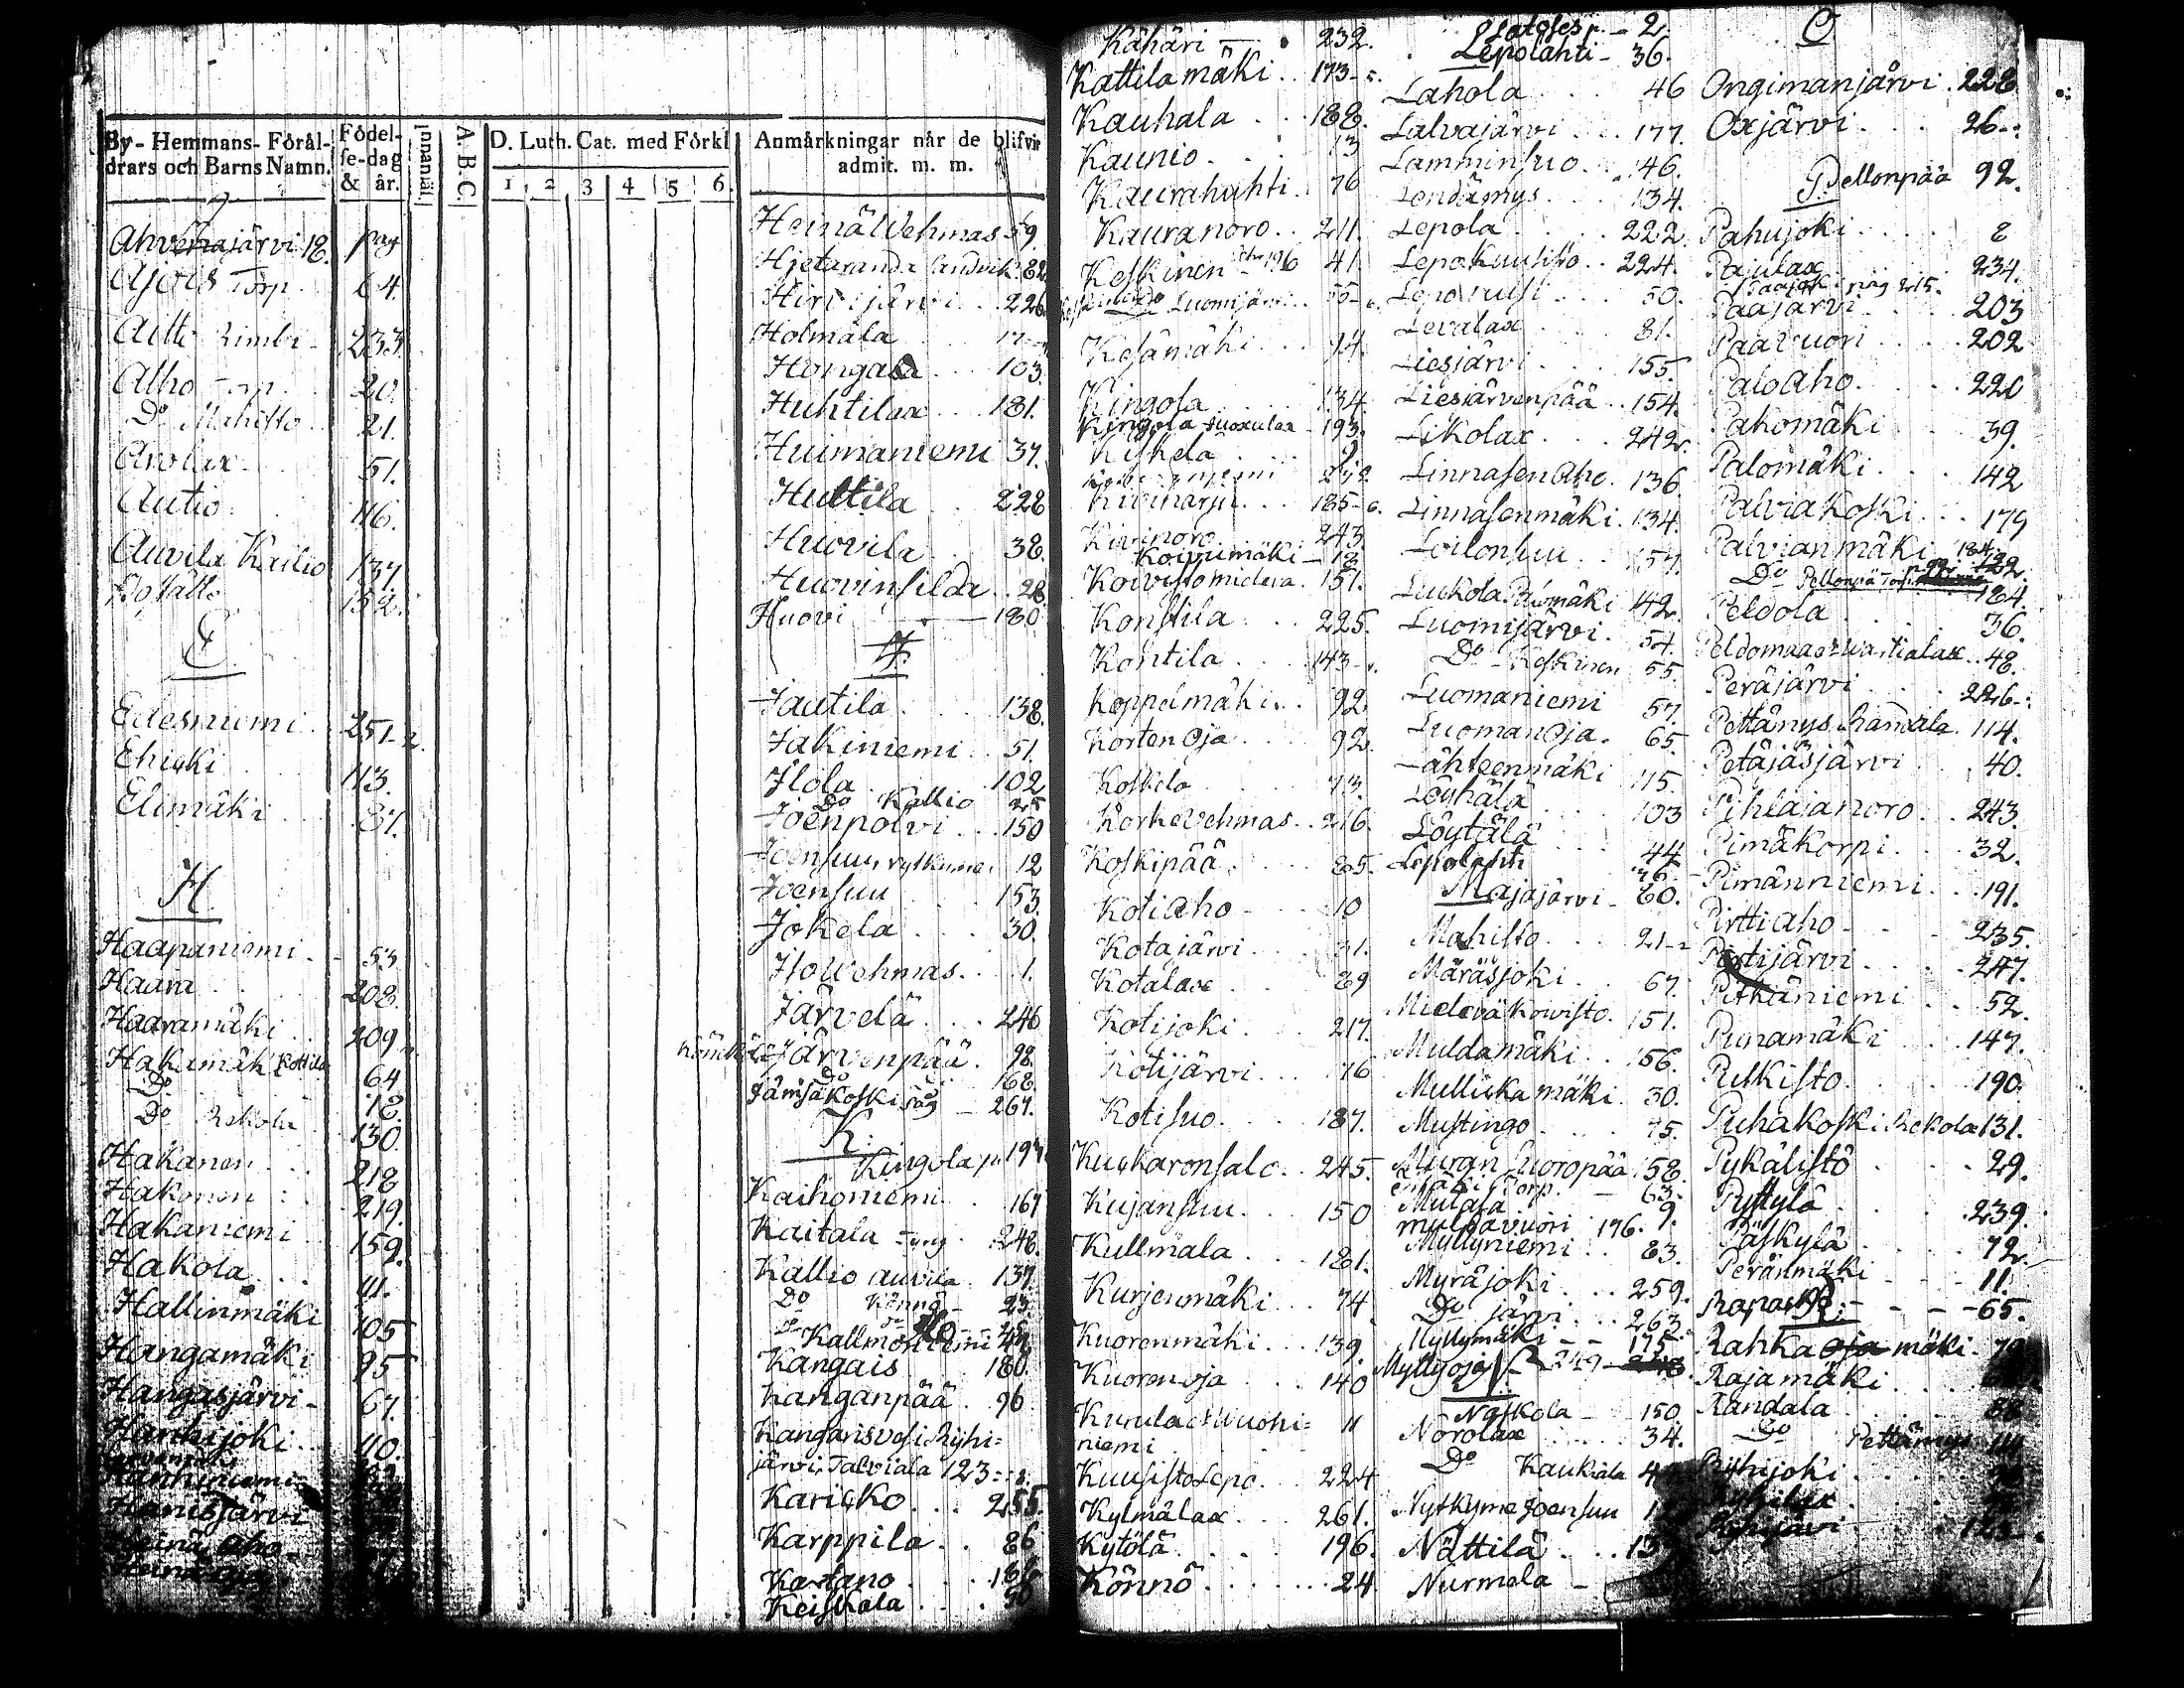 By- Hemmans- Förål-
drars och Barns Namn.
Födel-
se-dag
& år.
Innanläs.
A. B. C.
D. Luth. Cat. med Förkl.
1 2 3 4 5 6.
Anmårkningar når de blifvit
admit. m. m.
Ahvenajärvi 18. pag
Ajois Torp. 64.
Aitto 233.
Alho Torp. 20.
Do Mahisto 21.
Arolax 51.
Autio 116.
Auvila Kallio 137.
152.
E
Edesniemi 251-2.
Ehicki 113.
Elimäki 81.
H
Haapaniemi 53
Haara 208.
Haaramäki 209
Hakamäki Kottila 64
Do 18.
Do Rekola 130.
Hakanen 218
Hakonen 219.
Hakaniemi 159.
Hakola 41.
Hallinmäki 105
Hangamäki 95
Hangasjärvi 67.
Hanhijoki 40.
Hanhiniemi
Heinä Aho
Heinä Wehmas 59.
Hjetaranda Sandvik 82
Hirvijärvi 226
Holmala 17
Hongala 103.
Huhtilax 181.
Huimaniemi 37.
Hultila 228
Huovila 38.
Huovinsilda 28
Huovi 180
J.
Jautila 138.
Jakiniemi 51.
Jlola 102
Do Kallio 25
Joenpolvi 150
Joensuu Nytkyme 12
Joensuu 153.
Jokela 30.
JsoWehmas 1.
Järvelä 246
Järvenpää 98.
Do 168.
Jämsäkoski såg 267.
K.
Kingola p. 194
Kaihoniemi 167
Kaitala Torp 248.
Kallio Auvila 137.
Do Könnö 23.
Kallmoniemi
Kangais 180.
Kanganpää 96
Kangarisvesi Ryhi=
järvi, Talviala 123
Karicko 255.
Karppila 86
Kartano 166
Keiskala 50
Kähäri 232.
Kattilamäki 173
Kauhala 188.
Kaunio 13
Kaurahuhti 76
Kauranoro 211.
Keskinen 41.
Luomijärvi 55
Kesämäki 14.
Kingola 134.
Kingola Suoxulax 193.
Kiskela 9.
Kiviharju 185-6.
Kivinoro 243.
Koivumäki 18
Koivistomielevä 151.
Konstila 225.
Kontila 143
Koppelmäki 92
KortenOja 92.
Koskela 73.
KorkeVehmas 216.
Koskipää 85.
KotiAho 10
Kotajärvi 31.
Kotalax 89
Kotijoki 217.
Kotijärvi 76
Kotisuo 187.
Kuckaronsalo 245.
Kujansuu 150
Kullmala 181.
Kurjenmäki 74
Kuorenmäki 139.
Kuorenoja 140
Kurula Wuohi= 11
niemi
KuusistoLepo 224
Kylmälax 261.
Kytölä 196.
Könnö 24.
2.
Lepolahti 36.
Lahola 46
Lalvajärvi 177.
Lamminsuo 46.
Lendämys 134.
Lepola 222
LepoKuusisto 224.
Lepovuosi 50.
Levalax 81.
Liesjärvi 155.
Liesjärvenpää 154.
Likolax 242.
LinnasenAho 136.
Linnasenmäki 134.
Loilonsuu 157.
Luckola Palomäki 142.
Luomijärvi 54.
Do Keskinen 55
Luomaniemi 57.
LuomanOja 65.
Lähteenmäki 115.
Löyhälä 103
Löytälä 44
Lepolahti 36.
Majajärvi 60.
Mahisto 21-2
Märäsjoki 67.
Mielevä Koivisto 151.
Muldamäki 156.
Mullickamäki 30.
Mustingo 75.
Muran Suoropää 158.
63.
Mulala 9.
Multavuori 176.
Myllyniemi 83.
Myräjoki 259.
Do järvi 263.
Myllymäki 175
Myllyoja 249
Naskola 150
Norolax 34.
Do Kaukiala
Nytkyme Joensuu 12
Nättilä
Nurmela
O
Ongimanjärvi 228
Oxjärvi 26
P. Pellonpää 92.
Pahujoki 8
Pajulax 234.
pag 215.
Pääjärvi 203
Päävuori 202
PaloAho 220
Pakomäki 39.
Palomäki 142
Palviakoski 179
Palvianmäki 182.
Do Pellonpä Torp
Peldola 184.
36.
Peldomaa Wartialax 48.
Peräjärvi 226
Pettämys Randala 114.
Petäjäsjärvi 40.
Pihlajanoro 243.
Pimäkorpi 32.
Pimänniemi 191.
PirttiAho 235.
Pirtijärvi 247.
Pitkäniemi 52.
Punamäki 147.
Putkisto 190.
Puhakoski Rekola 131.
Pykälistö 29.
Pyttylä 239.
Päskylä 72.
Peränmäki 11.
R. 65.
Rahkamäki 79
Rajamäki
Randala 88
Do Pettämys 114
Ryhijoki
Ryhilax
Ryhijärvi 123